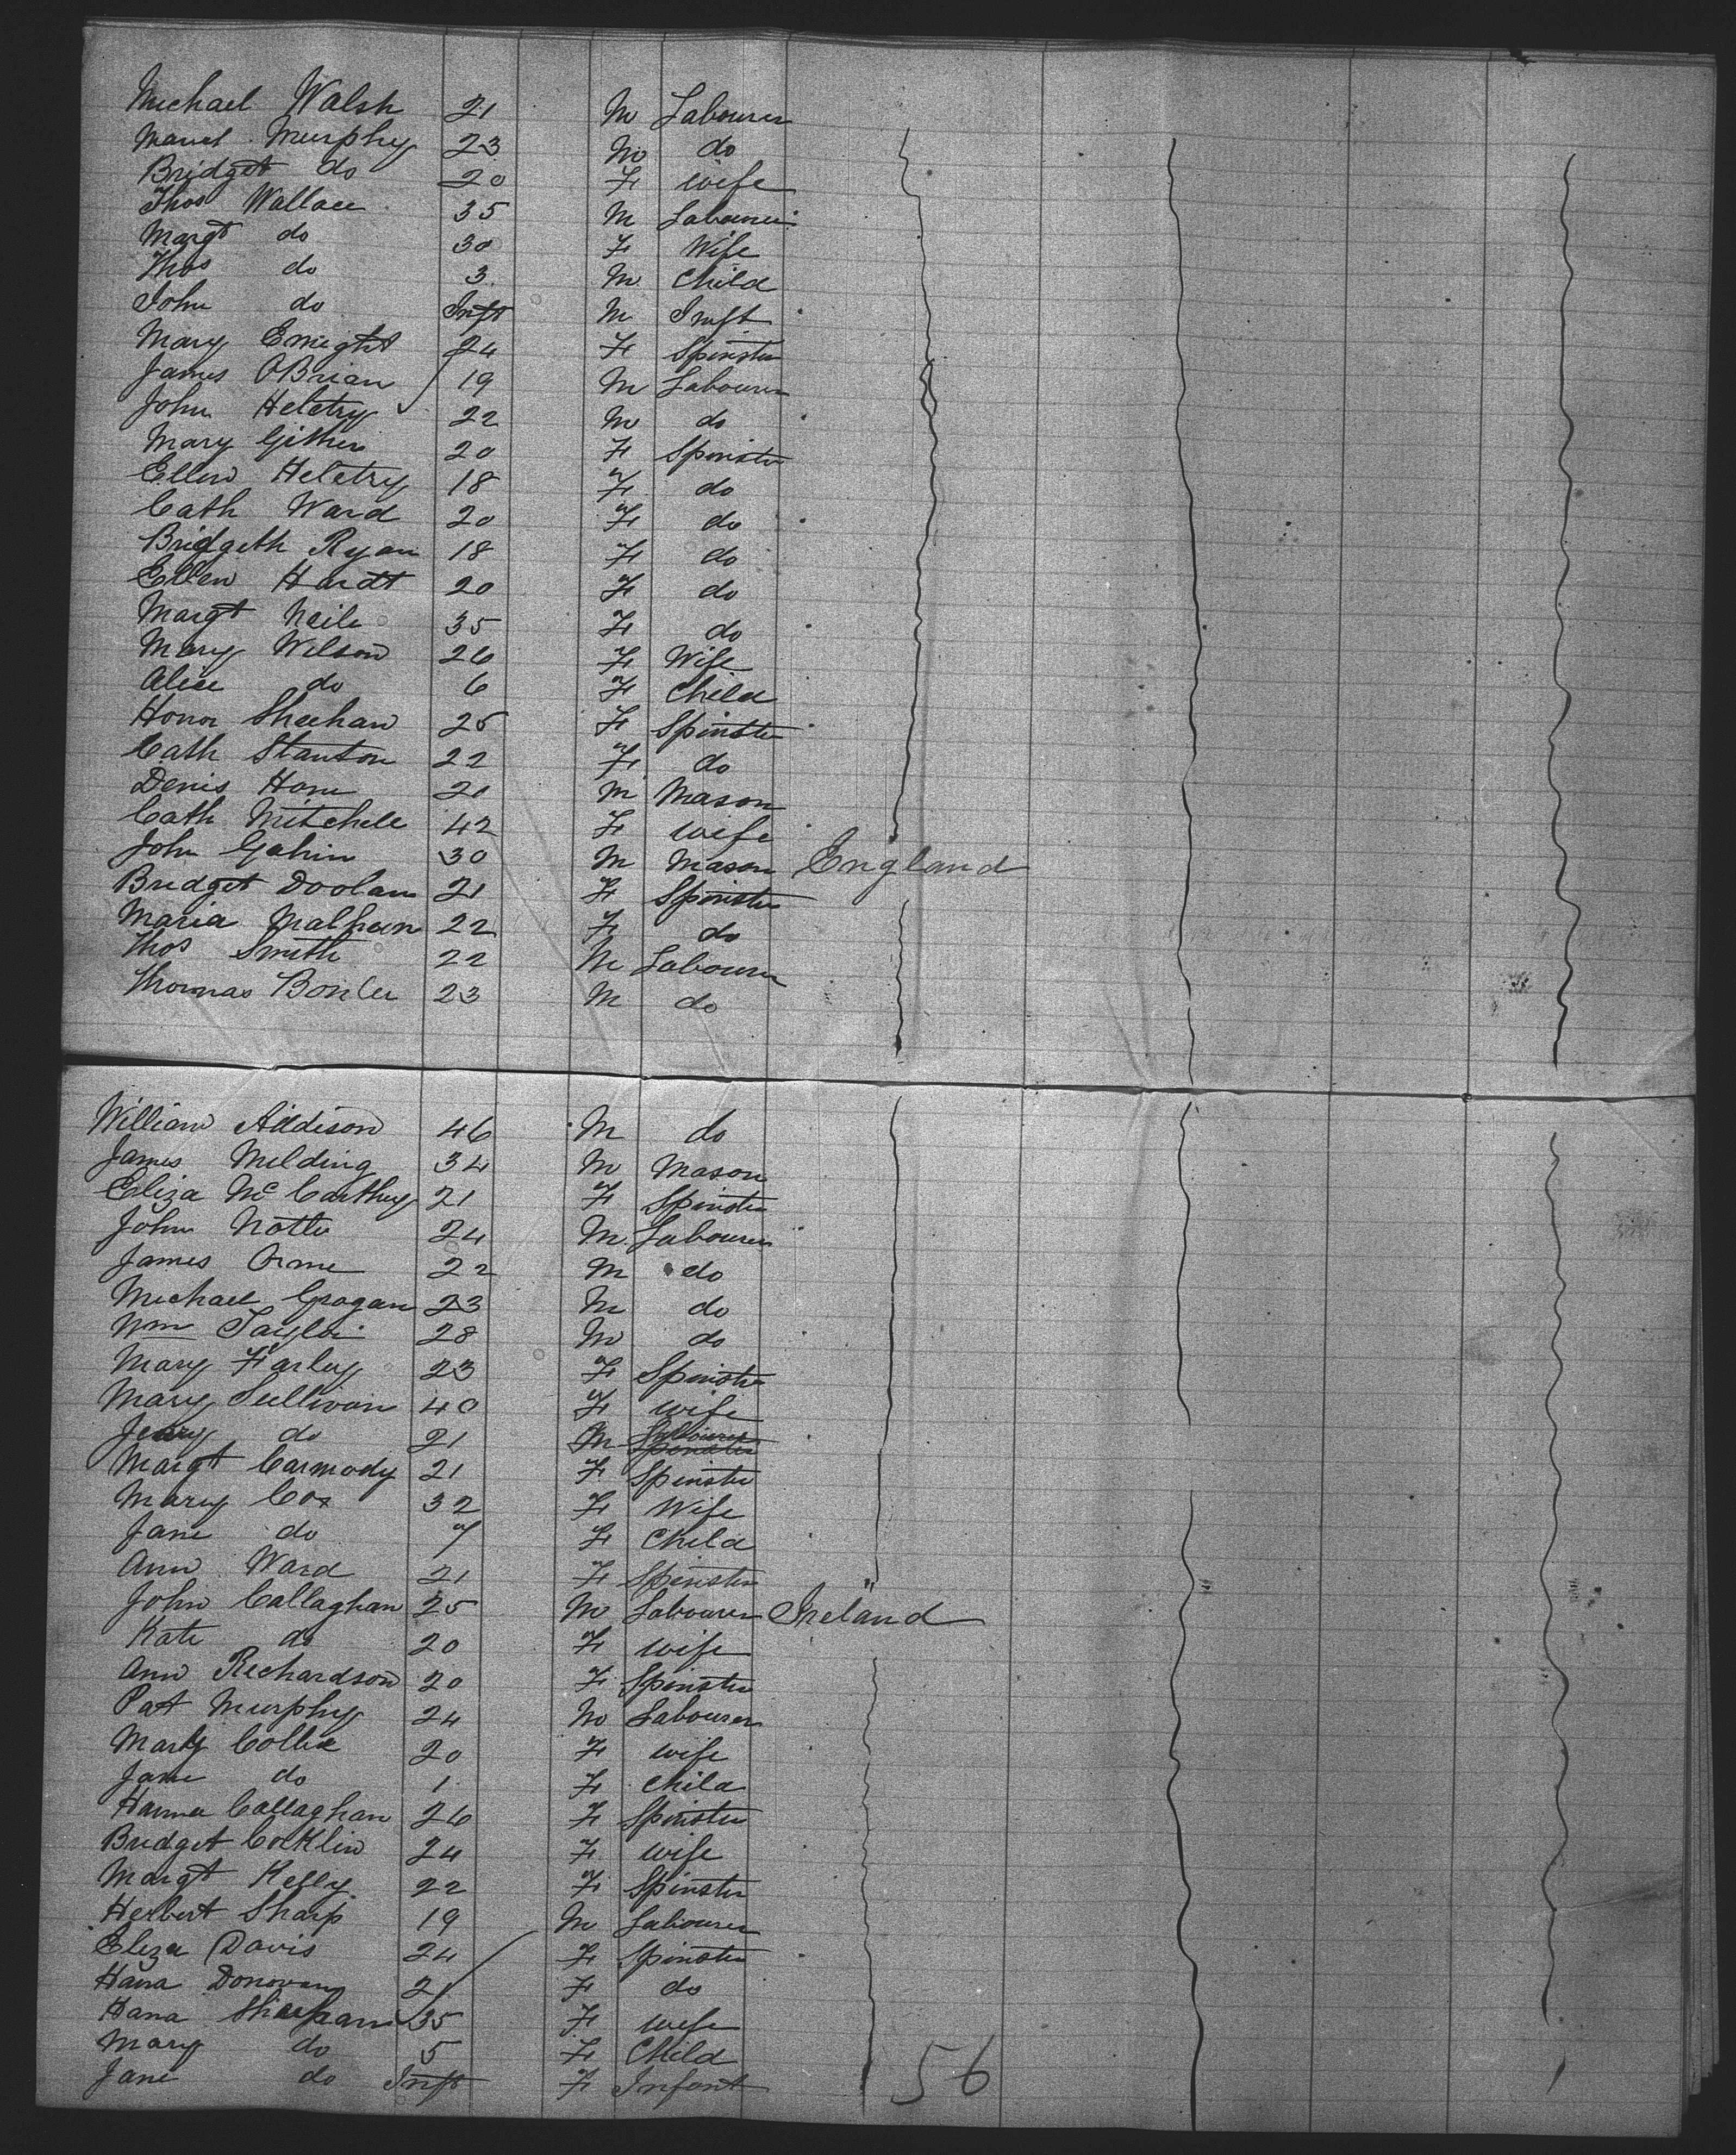 Michael Walsh 21 M Labourer
Murphy 23 M do
Bridget do 20 F wife
Thos Wallace 35 M Labourer
Margt do 30 F Wife
Thos do 3 M Child
John do Inft M Inft
Mary Enright 24 F Spinster
James OBrian 19 M Labourer
John Heletry 22 M do
Mary 20 F Spinster
Ellen Heletry 18 F do
Cath Ward 20 F do
Bridgeth Ryan 18 F do
Ellen Hardt 20 F do
Margt Neile 35 F do
Mary Wilson 26 F Wife
Alice do 6 F Child
Honor Sheehan 25 F Spinster
Cath Stanton 22 F do
Denis M Mason
Cath Mitchell 42 F wife
John Gahin 30 M Mason England
Bridget Doolan 21 F Spinster
Maria 22 F do
Thos Smith 22 M Labourer
Thomas 23 M do
William Addison 46 M do
James Milding 34 M Mason
Eliza Mc Carthy 21 F Spinster
John 24 M Labourer
James Orme 22 M do
Michael Grogan 23 M do
Wm Taylor 28 M do
Mary Farley 23 F Spinster
Mary Sullivan 40 F wife
Jerry do 21 M Labourer
Margt Carmody 21 F Spinster
Mary Cox 32 F Wife
Jane do 7 F Child
Ann Ward 21 F Spinster "
John Callaghan 25 M Labourer Ireland
Kate do 20 F wife
Ann Richardson 20 F Spinster
Pat Murphy 24 M Labourer
Mary 20 F wife
Jane do 1 F Child
Hanna Callaghan 26 F Spinster
Bridget Cocklin 24 F wife
Margt Kelly 22 F Spinster
Herbert Sharp 19 M Labourer
Eliza Davis 24 F Spinster
Hana Donovan 21 F do
Hana Sheehan 35 F wife
Mary do 5 F Child
Jane do Inft F Infant
56